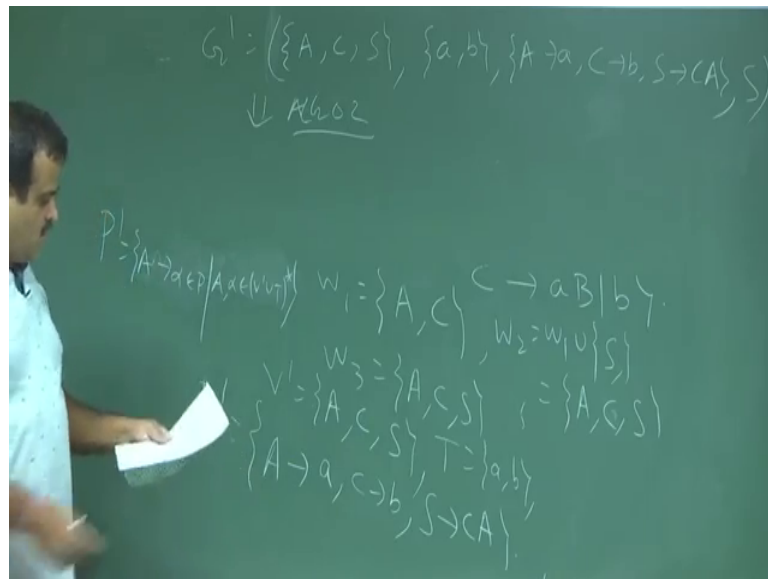 G' = ({A, C, S}, {a, b}, {A → a, C → b, S → CA}, S)
⇓ ALGO2
P' = {A → α ∈ P | A, α ∈ (V' ∪ T)*}
W₁ = {A, C}
C → aB | b}.
W₂ = W₁ ∪ {S}
W₃ = {A, C, S}, = {A, C, S}
V' = {A, C, S}, T = {a, b},
= {A → a, C → b, S → CA}.